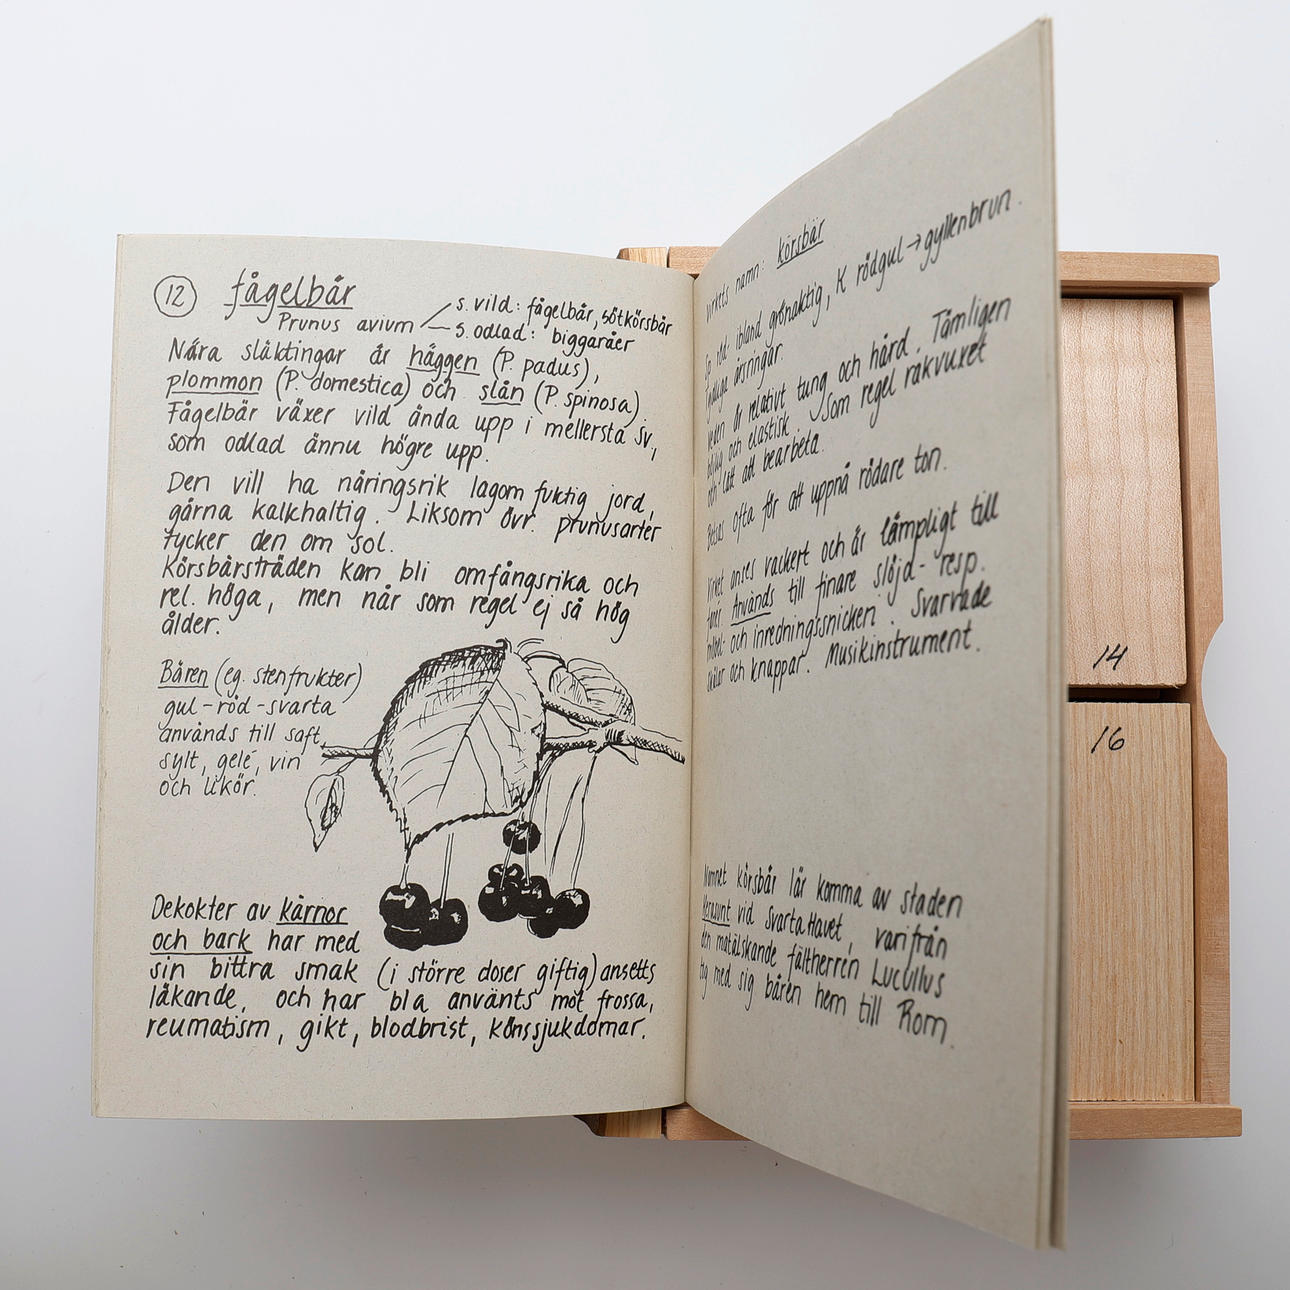 12 fågelbär
Prunus avium
s. vild: fågelbär, sötkörsbär
s. odlad: biggaråer
Nära släktingar är häggen (P. padus),
plommon (P. domestica) och slån (P. spinosa).
Fågelbär växer vild ända upp i mellersta Sv,
som odlad ännu högre upp.
Den vill ha näringsrik lagom fuktig jord,
gärna kalkhaltig. Liksom övr. prunusarter
tycker den om sol.
Körsbärsträden kan bli omfångsrika och
rel. höga, men når som regel ej så hög
ålder.
Bären (eg. stenfrukter)
gul-röd-svarta
används till saft,
sylt, gelé, vin
och likör.
Dekokter av kärnor
och bark har med
sin bittra smak (i större doser giftig) ansetts
läkande, och har bl a använts mot frossa,
reumatism, gikt, blodbrist, könssjukdomar.
virkets namn: körsbär
Sp röd, ibland grönaktig, K rödgul → gyllenbrun.
årsringar.
Veden är relativt tung och hård. Tämligen
böjlig och elastisk. Som regel rakvuxet
och lätt att bearbeta.
Betsas ofta för att uppnå rödare ton.
Virket anses vackert och är lämpligt till
Används till finare slöjd- resp.
möbel- och inredningssnickeri. Svarvade
skålar och knappar. Musikinstrument.
14
16
Namnet körsbär lär komma av staden
Kerasunt vid Svarta Havet, varifrån
den matälskande fältherren Lucullus
tog med sig bären hem till Rom.